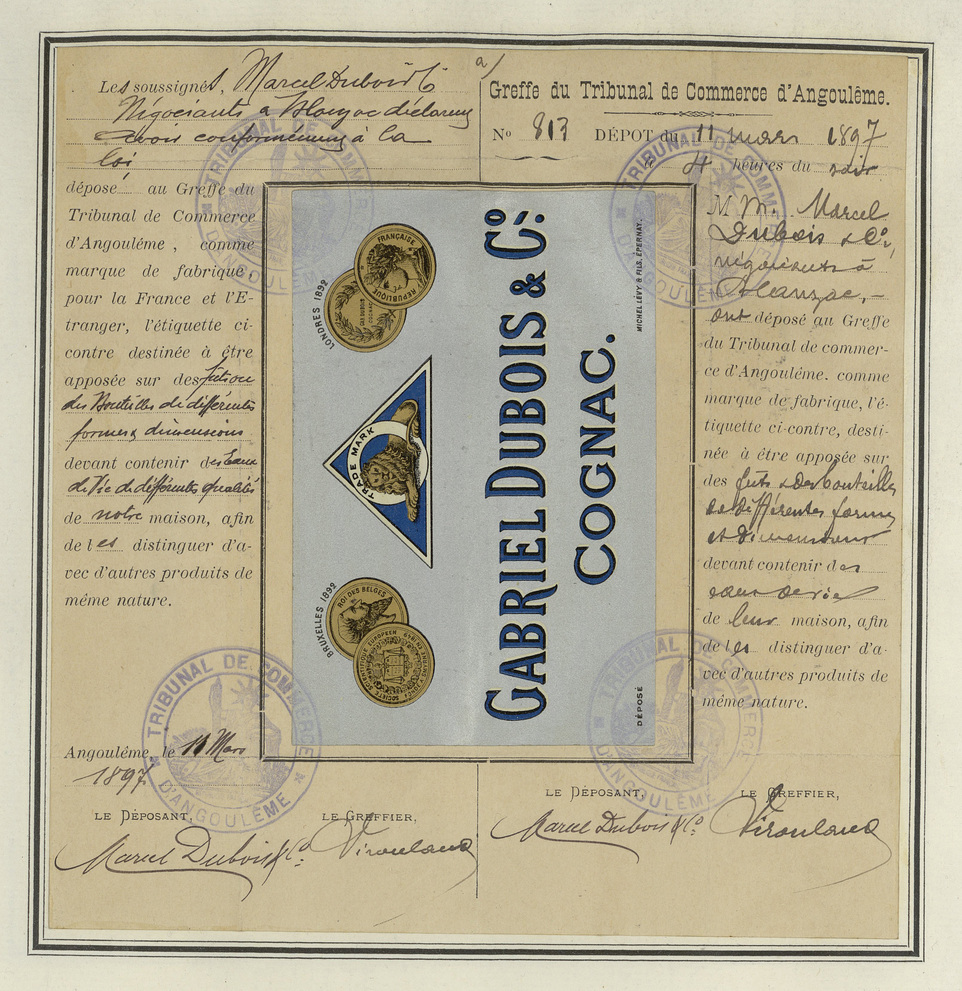 Les soussignés, Marcel Dubois & Cº
Négociants a Blanzac déclarons
avoir conformément à la
loi
déposé au Greffe du
Tribunal de Commerce
d'Angoulême, comme
marque de fabrique
pour la France et l'E-
tranger, l'étiquette ci-
contre destinée à être
apposée sur des futs ou
des Bouteilles de différentes
formes & dimensions
devant contenir des Eaux
de Vie de différentes qualités
de notre maison, afin
de les distinguer d'a-
vec d'autres produits de
même nature.
Angoulême, le 11 Mars
1897
LE DÉPOSANT,
LE GREFFIER,
Marcel Dubois & Cº
a/
Greffe du Tribunal de Commerce d'Angoulême.
Nº 813 DÉPOT du 11 mars 1897
à 4 heures du soir
M M. Marcel
Dubois & Cº,
négociants à
Blanzac,-
ont déposé au Greffe
du Tribunal de commer-
ce d'Angoulême. comme
marque de fabrique, l'é-
tiquette ci-contre, desti-
née à être apposée sur
des futs & des bouteilles
de différentes formes
et dimensions
devant contenir des
eaux de vie
de leur maison, afin
de les distinguer d'a-
vec d'autres produits de
même nature.
LE DÉPOSANT,
LE GREFFIER,
Marcel Dubois & Cº
GABRIEL DUBOIS & Cº.
COGNAC.
LONDRES 1892
RÉPUBLIQUE FRANÇAISE
TRADE MARK
BRUXELLES 1892
ROI DES BELGES
DÉPOSÉ
MICHEL LÉVY & FILS, ÉPERNAY.
TRIBUNAL DE COMMERCE
D'ANGOULÊME
TRIBUNAL DE COMMERCE
D'ANGOULÊME
TRIBUNAL DE COMMERCE
D'ANGOULÊME
TRIBUNAL DE COMMERCE
D'ANGOULÊME